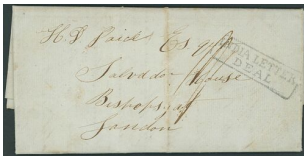 H P Paide Esqre
Salvador House
Bishopsgat
London
INDIA LETTER
DEAL